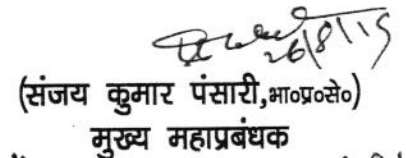 26/8/15
(संजय कुमार पंसारी,भा०प्र०से०)
मुख्य महाप्रबंधक